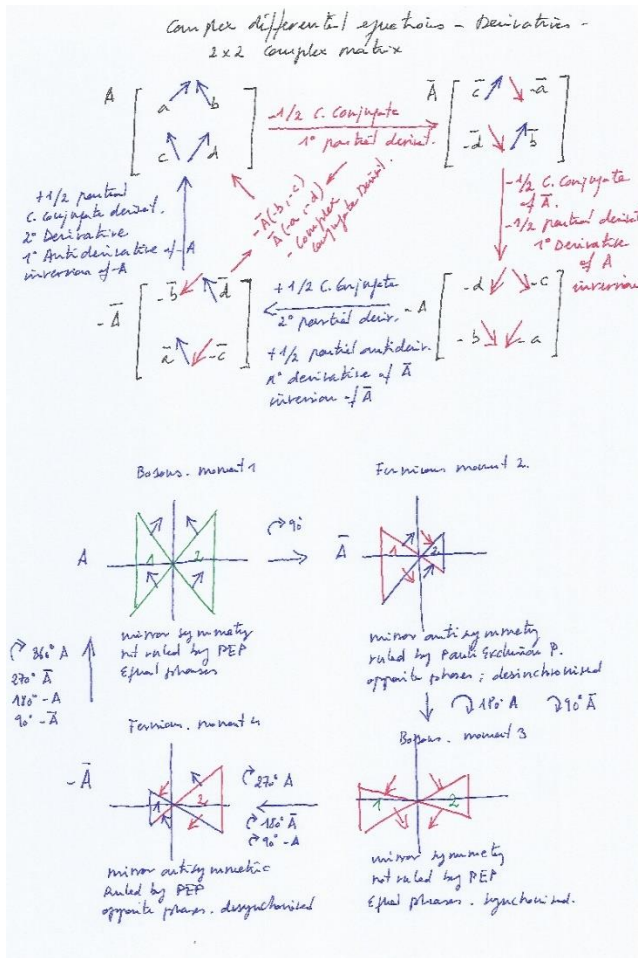 Complex differential equations - Derivatives -
2x2 complex matrix
A
a b
c d
-1/2 C. Conjugate
1° partial derivat.
Ā
c̄ -ā
-d̄ b̄
+1/2 partial
C. Conjugate derivat.
2° Derivative
1° Antiderivative of -A
inversion of -A
-Ā(-b, -c)
Ā(-a, -d)
- Complex
Conjugate Derivat.
-1/2 C. Conjugate
of Ā.
-1/2 partial derivat
1° Derivative
of A
inversion
-Ā
-b̄ d̄
ā -c̄
+1/2 C. Conjugate
2° partial deriv.
+1/2 partial antideriv.
1° derivative of Ā
inversion of Ā
-A
-d -c
-b -a
Bosons. moment 1
A
1 2
90°
mirror symmetry
not ruled by PEP
Equal phases
Fermions moment 2.
Ā
1 2
mirror antisymmetry
ruled by Pauli Exclusion P.
opposite phases; desinchronised
360° A
270° Ā
180° -A
90° -Ā
180° A 90° Ā
Fermions. moment 4
-Ā
1 2
270° A
180° Ā
90° -A
mirror antisymmetric
ruled by PEP
opposite phases. desynchronised
Bosons. moment 3
1 2
mirror symmetry
not ruled by PEP
Equal phases. synchronised.